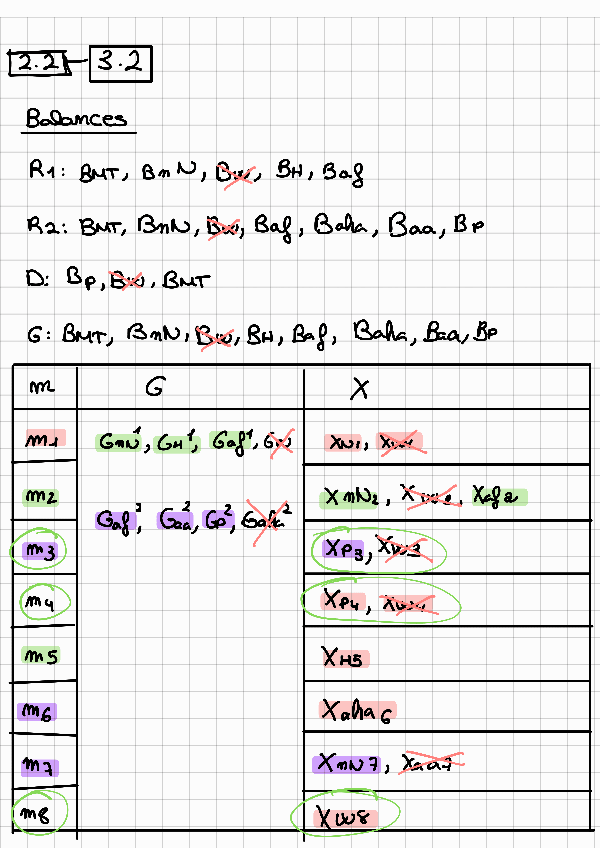 2.2 - 3.2
Balances
R1: BMT, BmN, Bw, BH, Baf
R2: BMT, BmN, Bw, Baf, Baha, Baa, BP
D: BP, Bw, BMT
G: BMT, BmN, Bw, BH, Baf, Baha, Baa, BP
m G X
m1 GmN¹, GH¹, Gaf¹, Gw XN1, Xw1
m2 XmN2, Xw2, Xaf2
Gaf², Gaa², GP², Gaha²
m3 XP3, Xw3
m4 XP4, Xw4
m5 XH5
m6 Xaha6
m7 XmN7, Xaa7
m8 Xw8